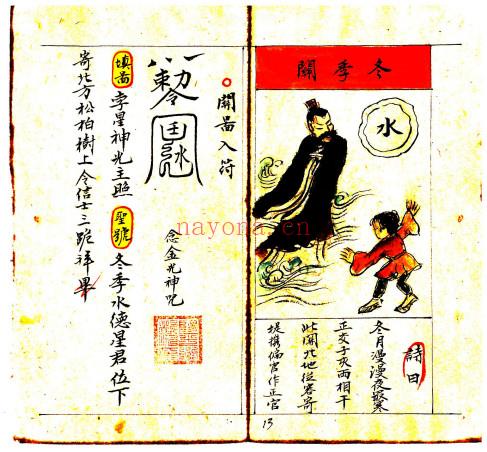 冬季關
水
詩曰
冬月漫漫夜寒
正交子亥兩相干
此關北地從春寄
偏官作正官
關啚入符
念金光神咒
填啚 孛星神光主照 聖號 冬季水德星君位下
寄北方松柏樹上令信士三跪畢
13
nayona.cn